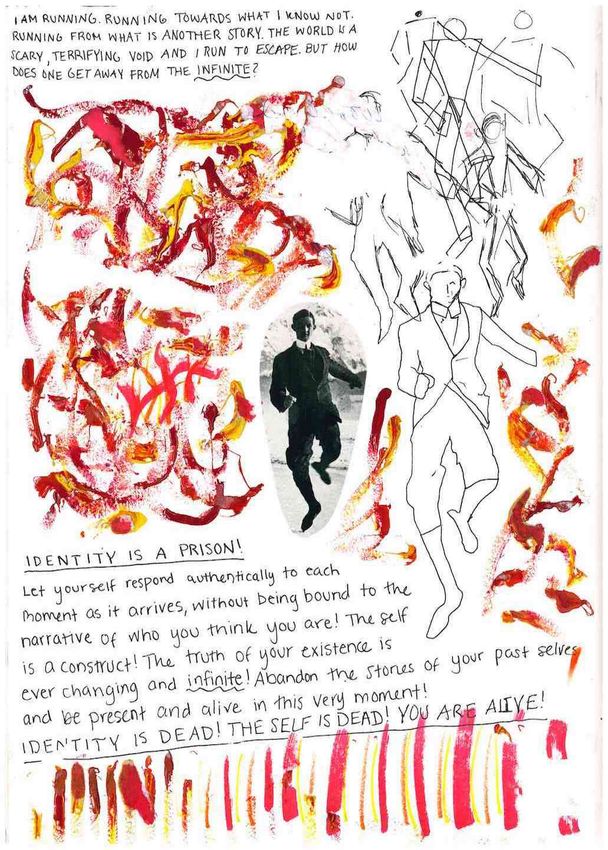 I AM RUNNING. RUNNING TOWARDS WHAT I KNOW NOT.
RUNNING FROM WHAT IS ANOTHER STORY. THE WORLD IS A
SCARY, TERRIFYING VOID AND I RUN TO ESCAPE. BUT HOW
DOES ONE GET AWAY FROM THE INFINITE?
IDENTITY IS A PRISON!
Let yourself respond authentically to each
moment as it arrives, without being bound to the
narrative of who you think you are! The self
is a construct! The truth of your existence is
ever changing and infinite! Abandon the stories of your past selves
and be present and alive in this very moment!
IDENTITY IS DEAD! THE SELF IS DEAD! YOU ARE ALIVE!